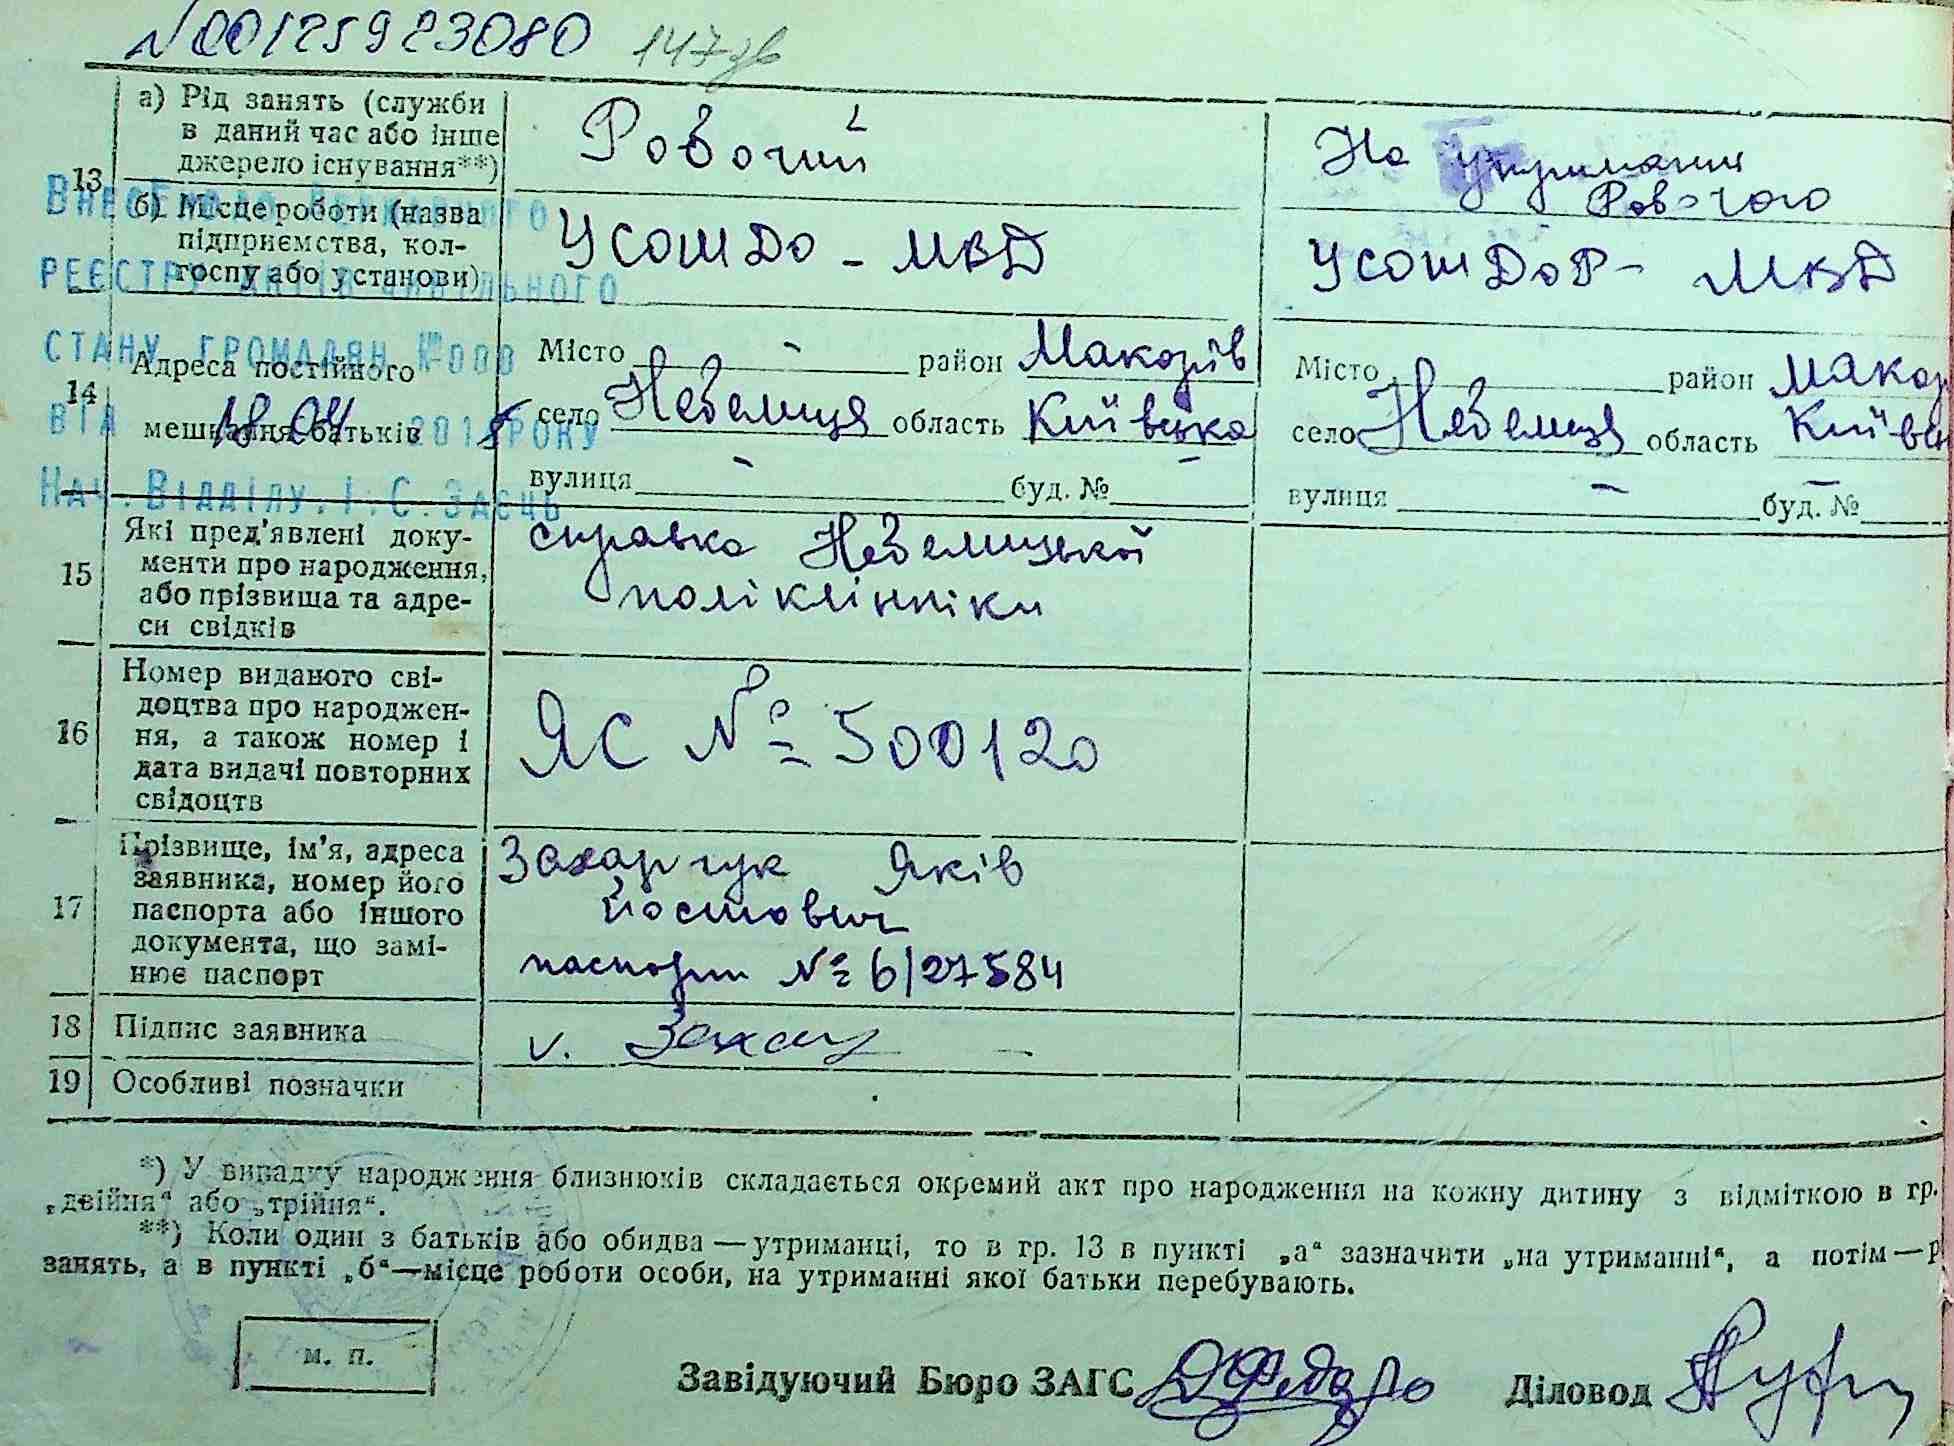 N00125923080 147зв
13
а) Рід занять (служби
в даний час або інше
джерело існування**)
Робочий
На утриманні
Робочого
б) Місце роботи (назва
підприємства, кол-
госпу або установи)
УСОШДО - МВД
УСОШДОР - МВД
ВНЕСЕНО ДО ДЕРЖАВНОГО
РЕЄСТРУ АКТІВ ЦИВІЛЬНОГО
СТАНУ ГРОМАДЯН №000
ВІД 18.04 2018 РОКУ
НАЧ. ВІДДІЛУ І.С.ЗАЄЦЬ
14
Адреса постійного
мешкання батьків
Місто - район Макорів
село Небелиця область Київська
вулиця - буд. № -
Місто район Макор
село Небелиця область Київсь
вулиця - буд. № -
15
Які пред'явлені доку-
менти про народження,
або прізвища та адре-
си свідків
справка Небелицької
поліклінніки
16
Номер виданого сві-
доцтва про народжен-
ня, а також номер і
дата видачі повторних
свідоцтв
ЯС № 500120
17
Прізвище, ім'я, адреса
заявника, номер його
паспорта або іншого
документа, що замі-
нює паспорт
Захарчук Яків
Йостович
паспорт № 6/27584
18 Підпис заявника
v. Захар
19 Особливі позначки
*) У випадку народження близнюків складається окремий акт про народження на кожну дитину з відміткою в гр.
„двійня“ або „трійня“.
**) Коли один з батьків або обидва — утриманці, то в гр. 13 в пункті „а“ зазначити „на утриманні“, а потім — р
занять, а в пункті „б“ — місце роботи особи, на утриманні якої батьки перебувають.
м. п.
Завідуючий Бюро ЗАГС
Діловод